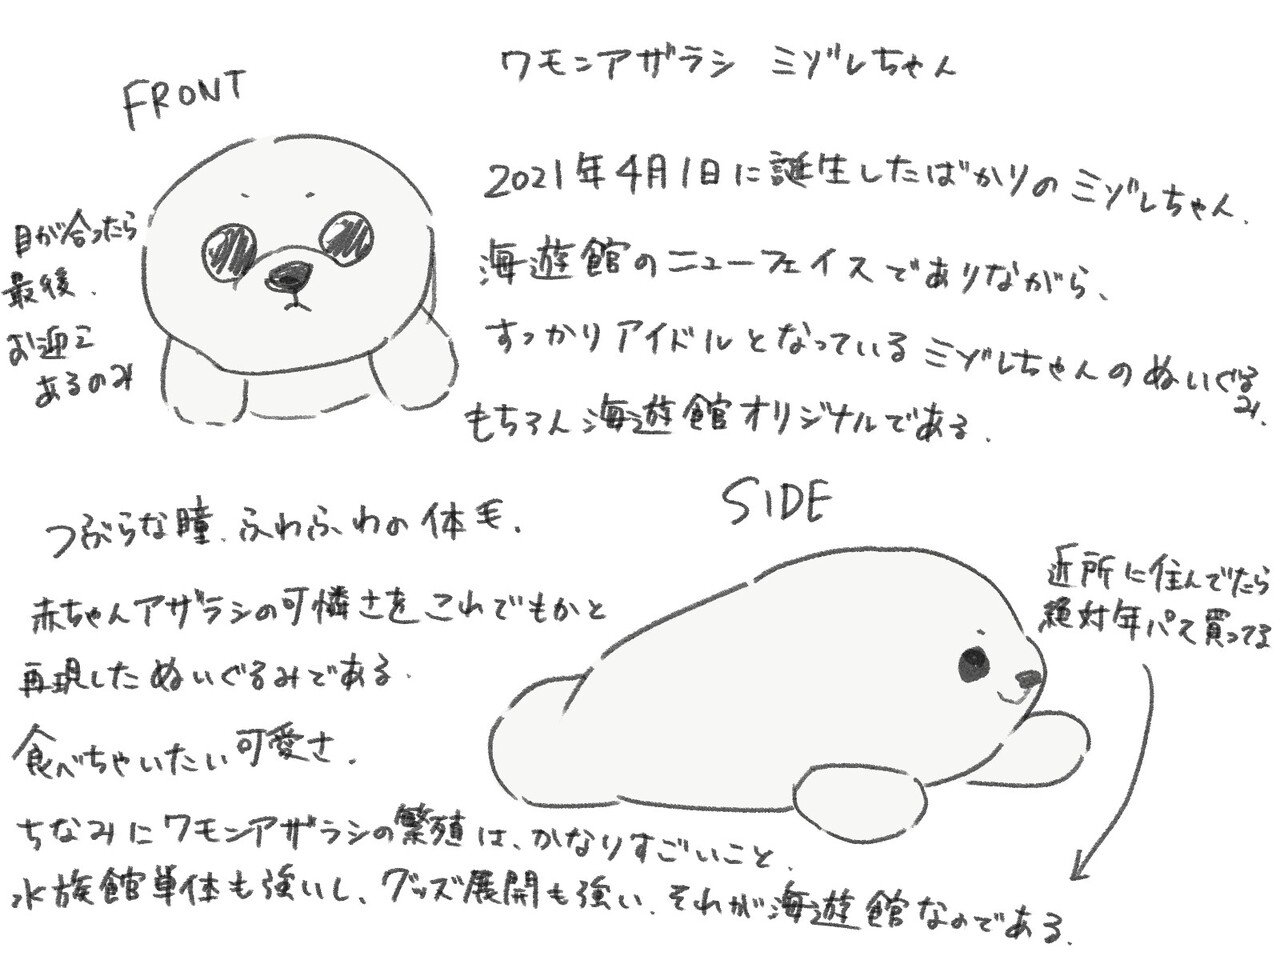 ワモンアザラシ ミゾレちゃん
FRONT
2021年4月1日に誕生したばかりのミゾレちゃん.
海遊館のニューフェイスでありながら、
すっかりアイドルとなっているミゾレちゃんのぬいぐるみ.
もちろん海遊館オリジナルである.
目が合ったら
最後.
お迎え
あるのみ
SIDE
つぶらな瞳.ふわふわの体毛.
赤ちゃんアザラシの可憐さをこれでもかと
再現したぬいぐるみである.
食べちゃいたい可愛さ.
近所に住んでたら
絶対年パス買ってる
ちなみにワモンアザラシの繁殖は、かなりすごいこと.
水族館単体も強いし、グッズ展開も強い.それが海遊館なのである.